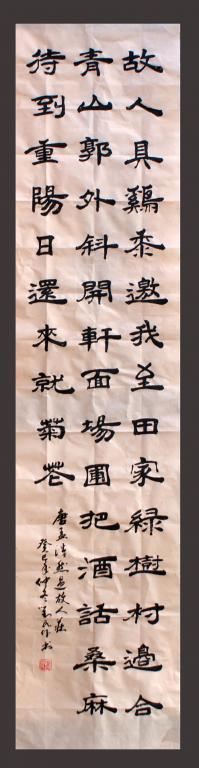 故人具鷄黍邀我至田家緑樹村邊合
青山郭外斜開軒面場圃把酒話桑麻
待到重陽日還來就菊花
唐孟浩然過故人莊
癸巳年仲冬